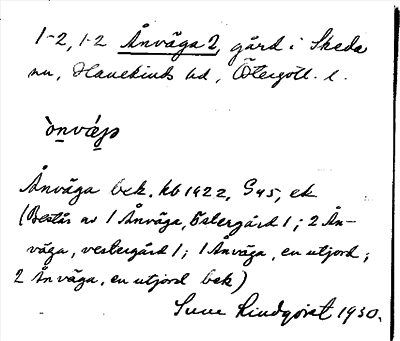 1-2, 1-2 Ånväga 2, gård i Skeda
sn, Hanekinds hd, Östergötl. l.
ònvǽga
Ånväga bek. kb 1922, G45, ek
(Består av 1 Ånväga, Östergård 1; 2 Ån-
väga, vestergård 1; 1 Ånväga, en utjord;
2 Ånväga, en utjord bek)
Sune Lindqvist 1930.